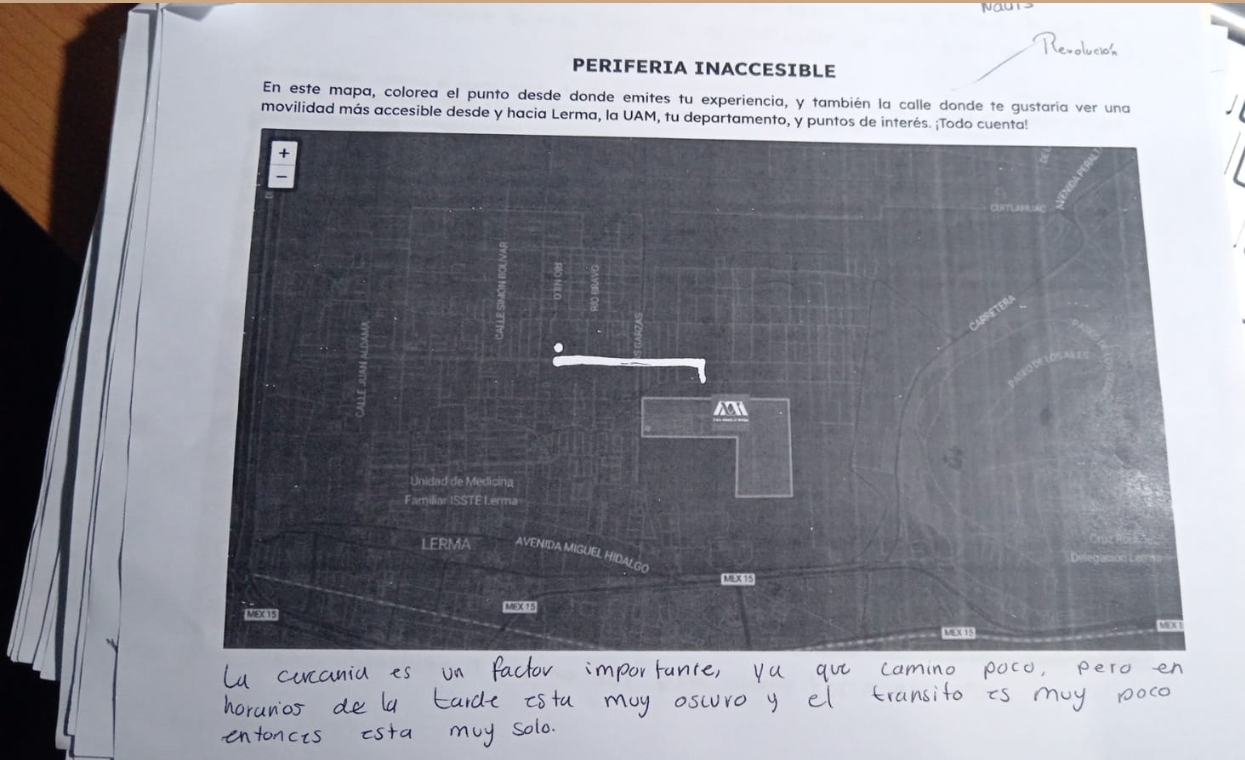 Revolución
PERIFERIA INACCESIBLE
En este mapa, colorea el punto desde donde emites tu experiencia, y también la calle donde te gustaría ver una
movilidad más accesible desde y hacia Lerma, la UAM, tu departamento, y puntos de interés. ¡Todo cuenta!
+
−
AVENIDA PERALT
CUITLAHUAC
CALLE SIMÓN BOLÍVAR
RIO NILO
RÍO BRAVO
CARRETERA
S GARZAS
CALLE JUAN ALDAMA
PASEO DE LOS ALES
Unidad de Medicina
Familiar ISSTE Lerma
LERMA
AVENIDA MIGUEL HIDALGO
Cruz Roja
Delegación Lerma
MEX 15
MEX 15
MEX 15
MEX 15
MEX 1
La cercania es un factor importante, ya que camino poco, pero en
horarios de la tarde esta muy oscuro y el transito es muy poco
entonces esta muy solo.